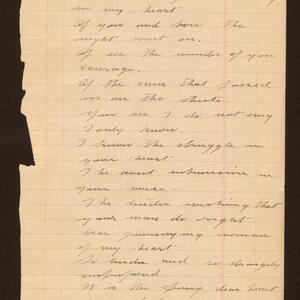 in my heart
Of you and how the
night went on.
Of all the wonder of your
courage.
Of the men that passed
in on the streets.
You see I do not say
I only know
I know the struggle in
your heart
The most submissive in
your voice.
The tender
your man do right
dear woman
of my heart
So tender and so strangely

It is the spring dear heart